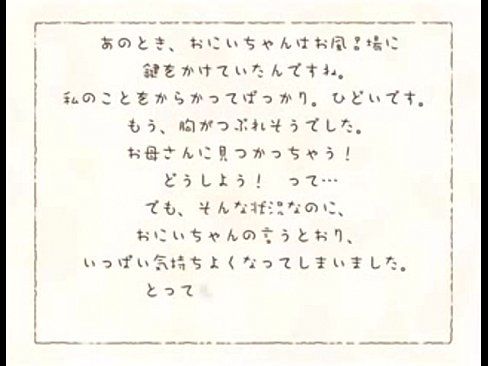 あのとき、おにいちゃんはお風呂場に
鍵をかけていたんですね。
私のことをからかってばっかり。ひどいです。
もう、胸がつぶれそうでした。
お母さんに見つかっちゃう！
どうしよう！　って…
でも、そんな状況なのに、
おにいちゃんの言うとおり、
いっぱい気持ちよくなってしまいました。
とって